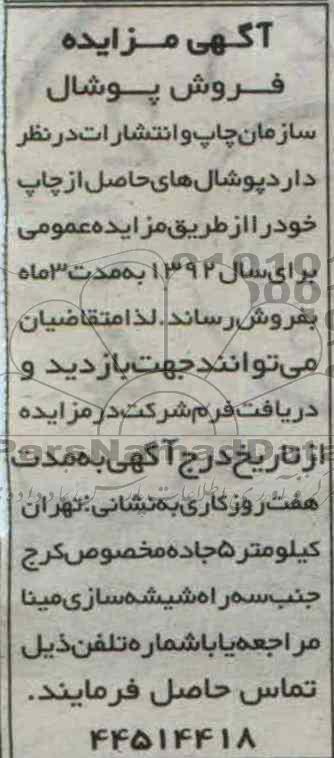 آگهی مزایده
فروش پوشال
سازمان چاپ و انتشارات در نظر
دارد پوشال های حاصل از چاپ
خود را از طریق مزایده عمومی
برای سال ۱۳۹۲ به مدت ۳ ماه
بفروش رساند. لذا متقاضیان
می توانند جهت بازدید و
دریافت فرم شرکت در مزایده
از تاریخ درج آگهی به مدت
هفت روز کاری به نشانی: تهران
کیلومتر ۵ جاده مخصوص کرج
جنب سه راه شیشه سازی مینا
مراجعه یا با شماره تلفن ذیل
تماس حاصل فرمایند.
۴۴۵۱۴۴۱۸